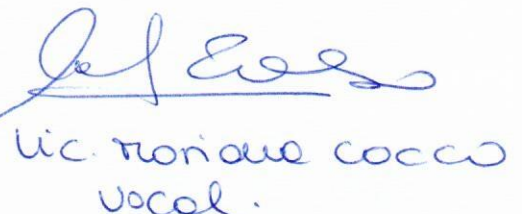 Lic. Mariana Cocco
Vocal.